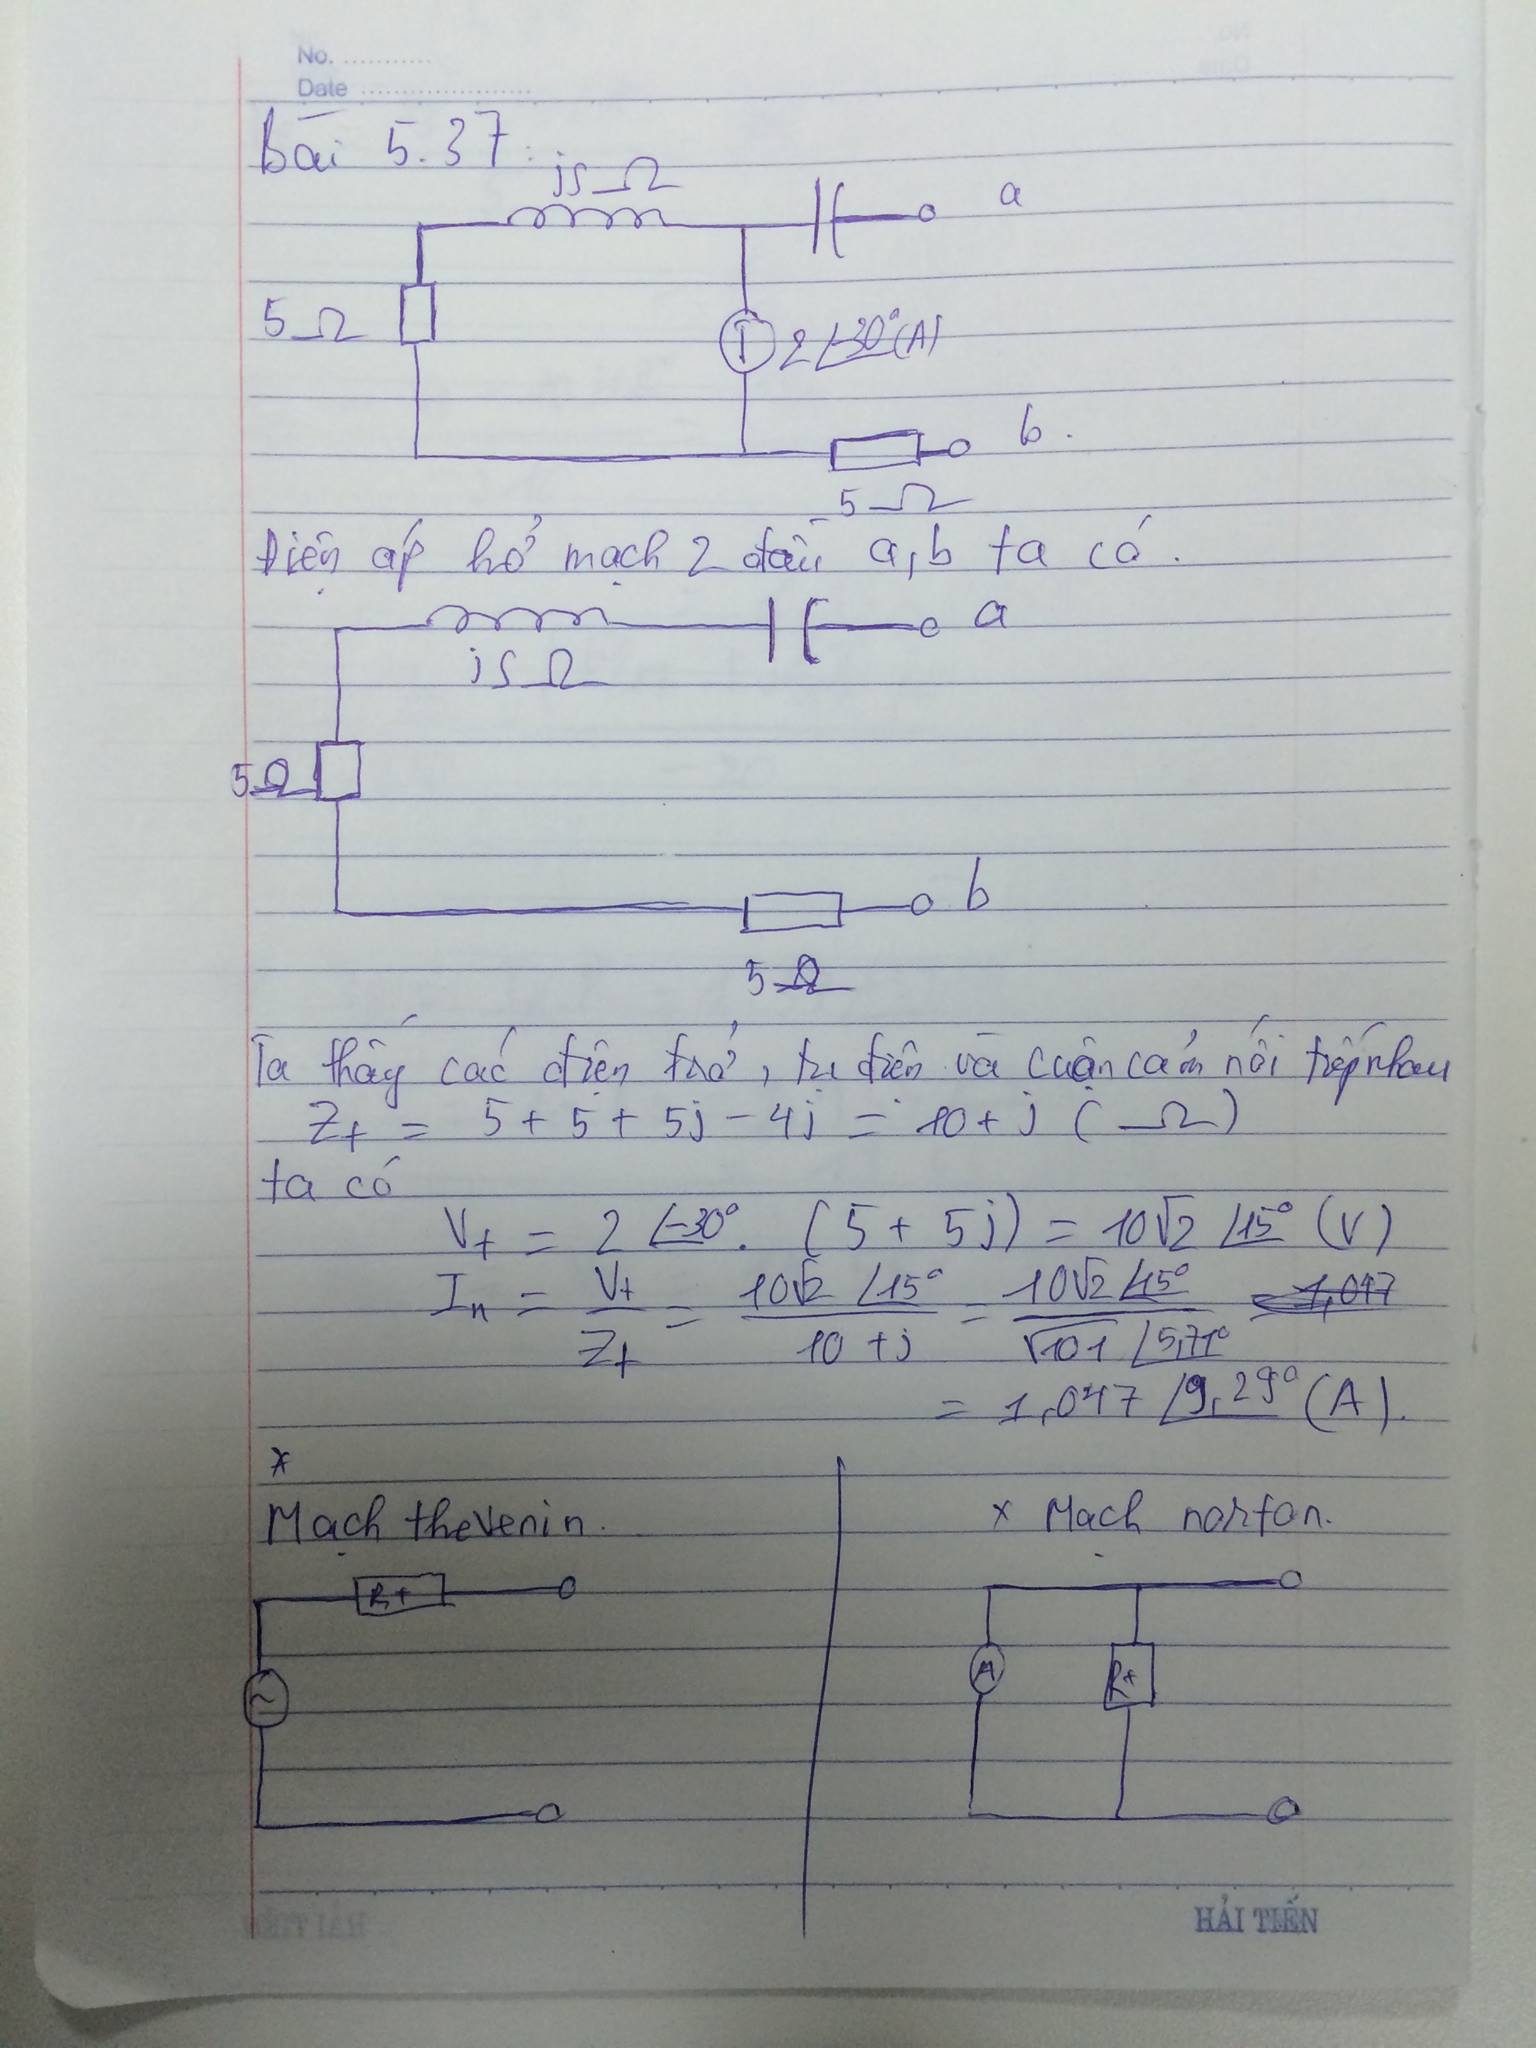 No. ............
Date ........................
bài 5.37:
j5 Ω
a
5 Ω
I
2 ∠-30° (A)
b.
5 Ω
Điện áp hở mạch 2 đầu a, b ta có.
a
j5 Ω
5 Ω
b
5 Ω
Ta thấy các điện trở, tụ điện và cuộn cảm nối tiếp nhau
Z_t = 5 + 5 + 5j - 4j = 10 + j ( Ω )
ta có
V_t = 2 ∠-30° . (5 + 5j) = 10√2 ∠15° (V)
I_n = V_t / Z_t = 10√2 ∠15° / 10 + j = 10√2 ∠15° / √101 ∠5,71°
= 1,047 ∠9,29° (A).
*
Mạch thevenin.
x Mạch norton.
R_t
~
A
R_t
HẢI TIẾN